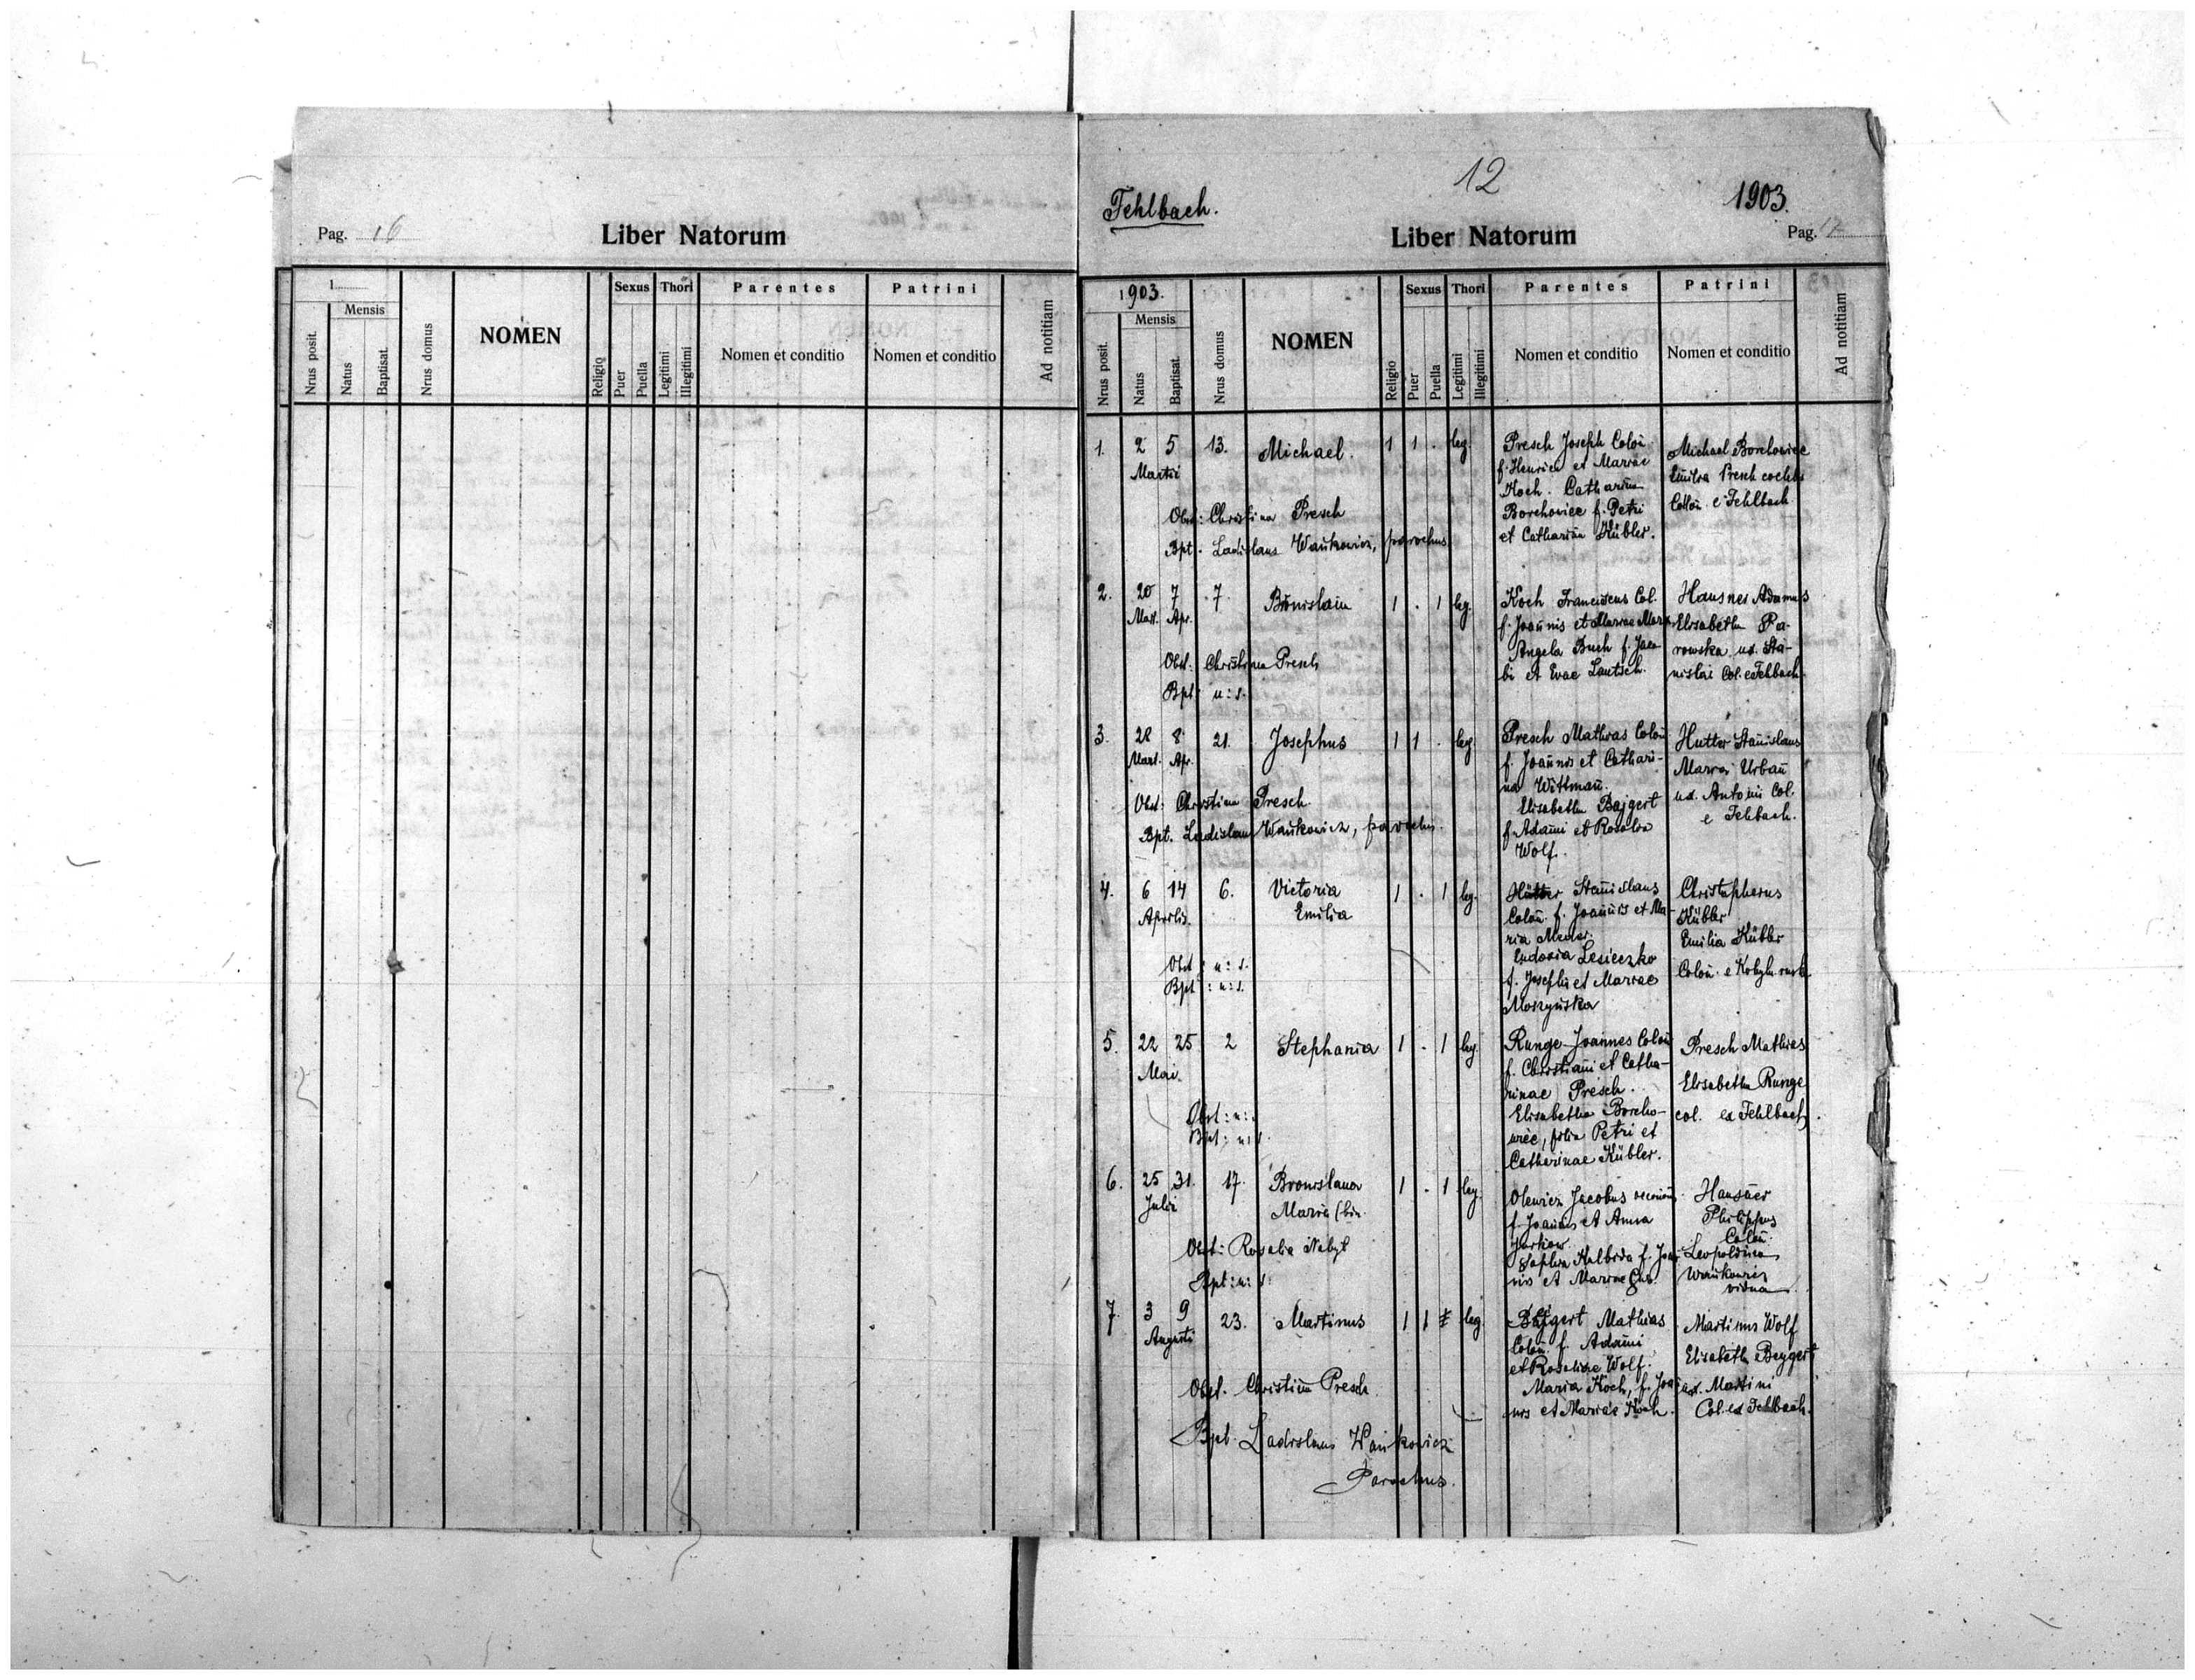 Pag. 16
Liber Natorum
1
Mensis
Nrus posit.
Natus
Baptisat.
Nrus domus
NOMEN
Religio
Sexus
Puer
Puella
Thori
Legitimi
Illegitimi
Parentes
Nomen et conditio
Patrini
Nomen et conditio
Ad notitiam
12
Fehlbach.
1903.
Liber Natorum
Pag. 17
1903.
Mensis
Nrus posit.
Natus
Baptisat.
Nrus domus
NOMEN
Religio
Sexus
Puer
Puella
Thori
Legitimi
Illegitimi
Parentes
Nomen et conditio
Patrini
Nomen et conditio
Ad notitiam
1. 2 5 13. Michael. 1 1 . leg.
Martii
Presch Joseph Colon̄
f. Henrici et Mariae
Koch. Catharina
Borchowiec f. Petri
et Catharina Kübler.
Michael Borchowiec
Emilia Presch
Colon̄. e Fehlbach
Obst: Christina Presch
Bpt. Ladislaus Wańkowicz, parochus
2. 20 7 7 1 . 1 leg.
Mart. Apr.
Koch Franciscus Col.
f. Joannis et Mariae
Angela Buch f. Jaco-
bi et Evae Lautsch.
Hausner Adamus
Elisabetha Pa-
rowska ux. Sta-
nislai Col. e Fehlbach.
Obst: Christina Presch
Bpt: u: s.
3. 28 8 21. Josephus 1 1 . leg.
Mart. Apr.
Presch Mathias Colon̄
f. Joannis et Cathari-
na Wittman̄.
Elisabetha Bajgert
f. Adami et Rosalia
Wolf.
Hutter Stanislaus
Maria Urban̄
ux. Antonii Col.
e Fehlbach.
Obst: Christina Presch
Bpt. Ladislaus Wańkowicz, parochus.
4. 6 14 6. Victoria 1 . 1 leg.
Aprilis. Emilia
Hütter Stanislaus
Colon̄. f. Joannis et Ma-
ria
Eudoxia Lesieczko
f. Josephi et Mariae
Moszyńska
Christopherus
Kübler
Emilia Kübler
Colon̄. e
Obst: u: s.
Bpt: u: s.
5. 22 25 2 Stephania 1 . 1 leg.
Mai.
Runge Joannes Colon̄
f. Christiani et Catha-
rinae Presch.
Elisabetha Borcho-
wiec, filia Petri et
Catharinae Kübler.
Presch Mathias
Elisabetha Runge
col. ex Fehlbach.
Obst: u: s.
Bpt: u: s.
6. 25 31. 17. Bronislava 1 . 1 leg.
Julii Maria (bin.
Jacobus
f. Joannis et Anna
Sophia f. Joan-
nis et Mariae
Hausner
Philippus
Colon̄.
Leopoldina
Wańkowicz
vidua
Obst: Rosalia
Bpt: u: s.
7. 3 9 23. Martinus 1 1 leg.
Augusti
Bajgert Mathias
Colon̄. f. Adami
et Rosaliae Wolf.
Maria Koch, f. Joan-
nis et Mariae Koch.
Martinus Wolf
Elisabetha Beygert
ux. Martini
Col. ex Fehlbach.
Obst. Christina Presch
Bpt. Ladislaus Wańkowicz
Parochus.